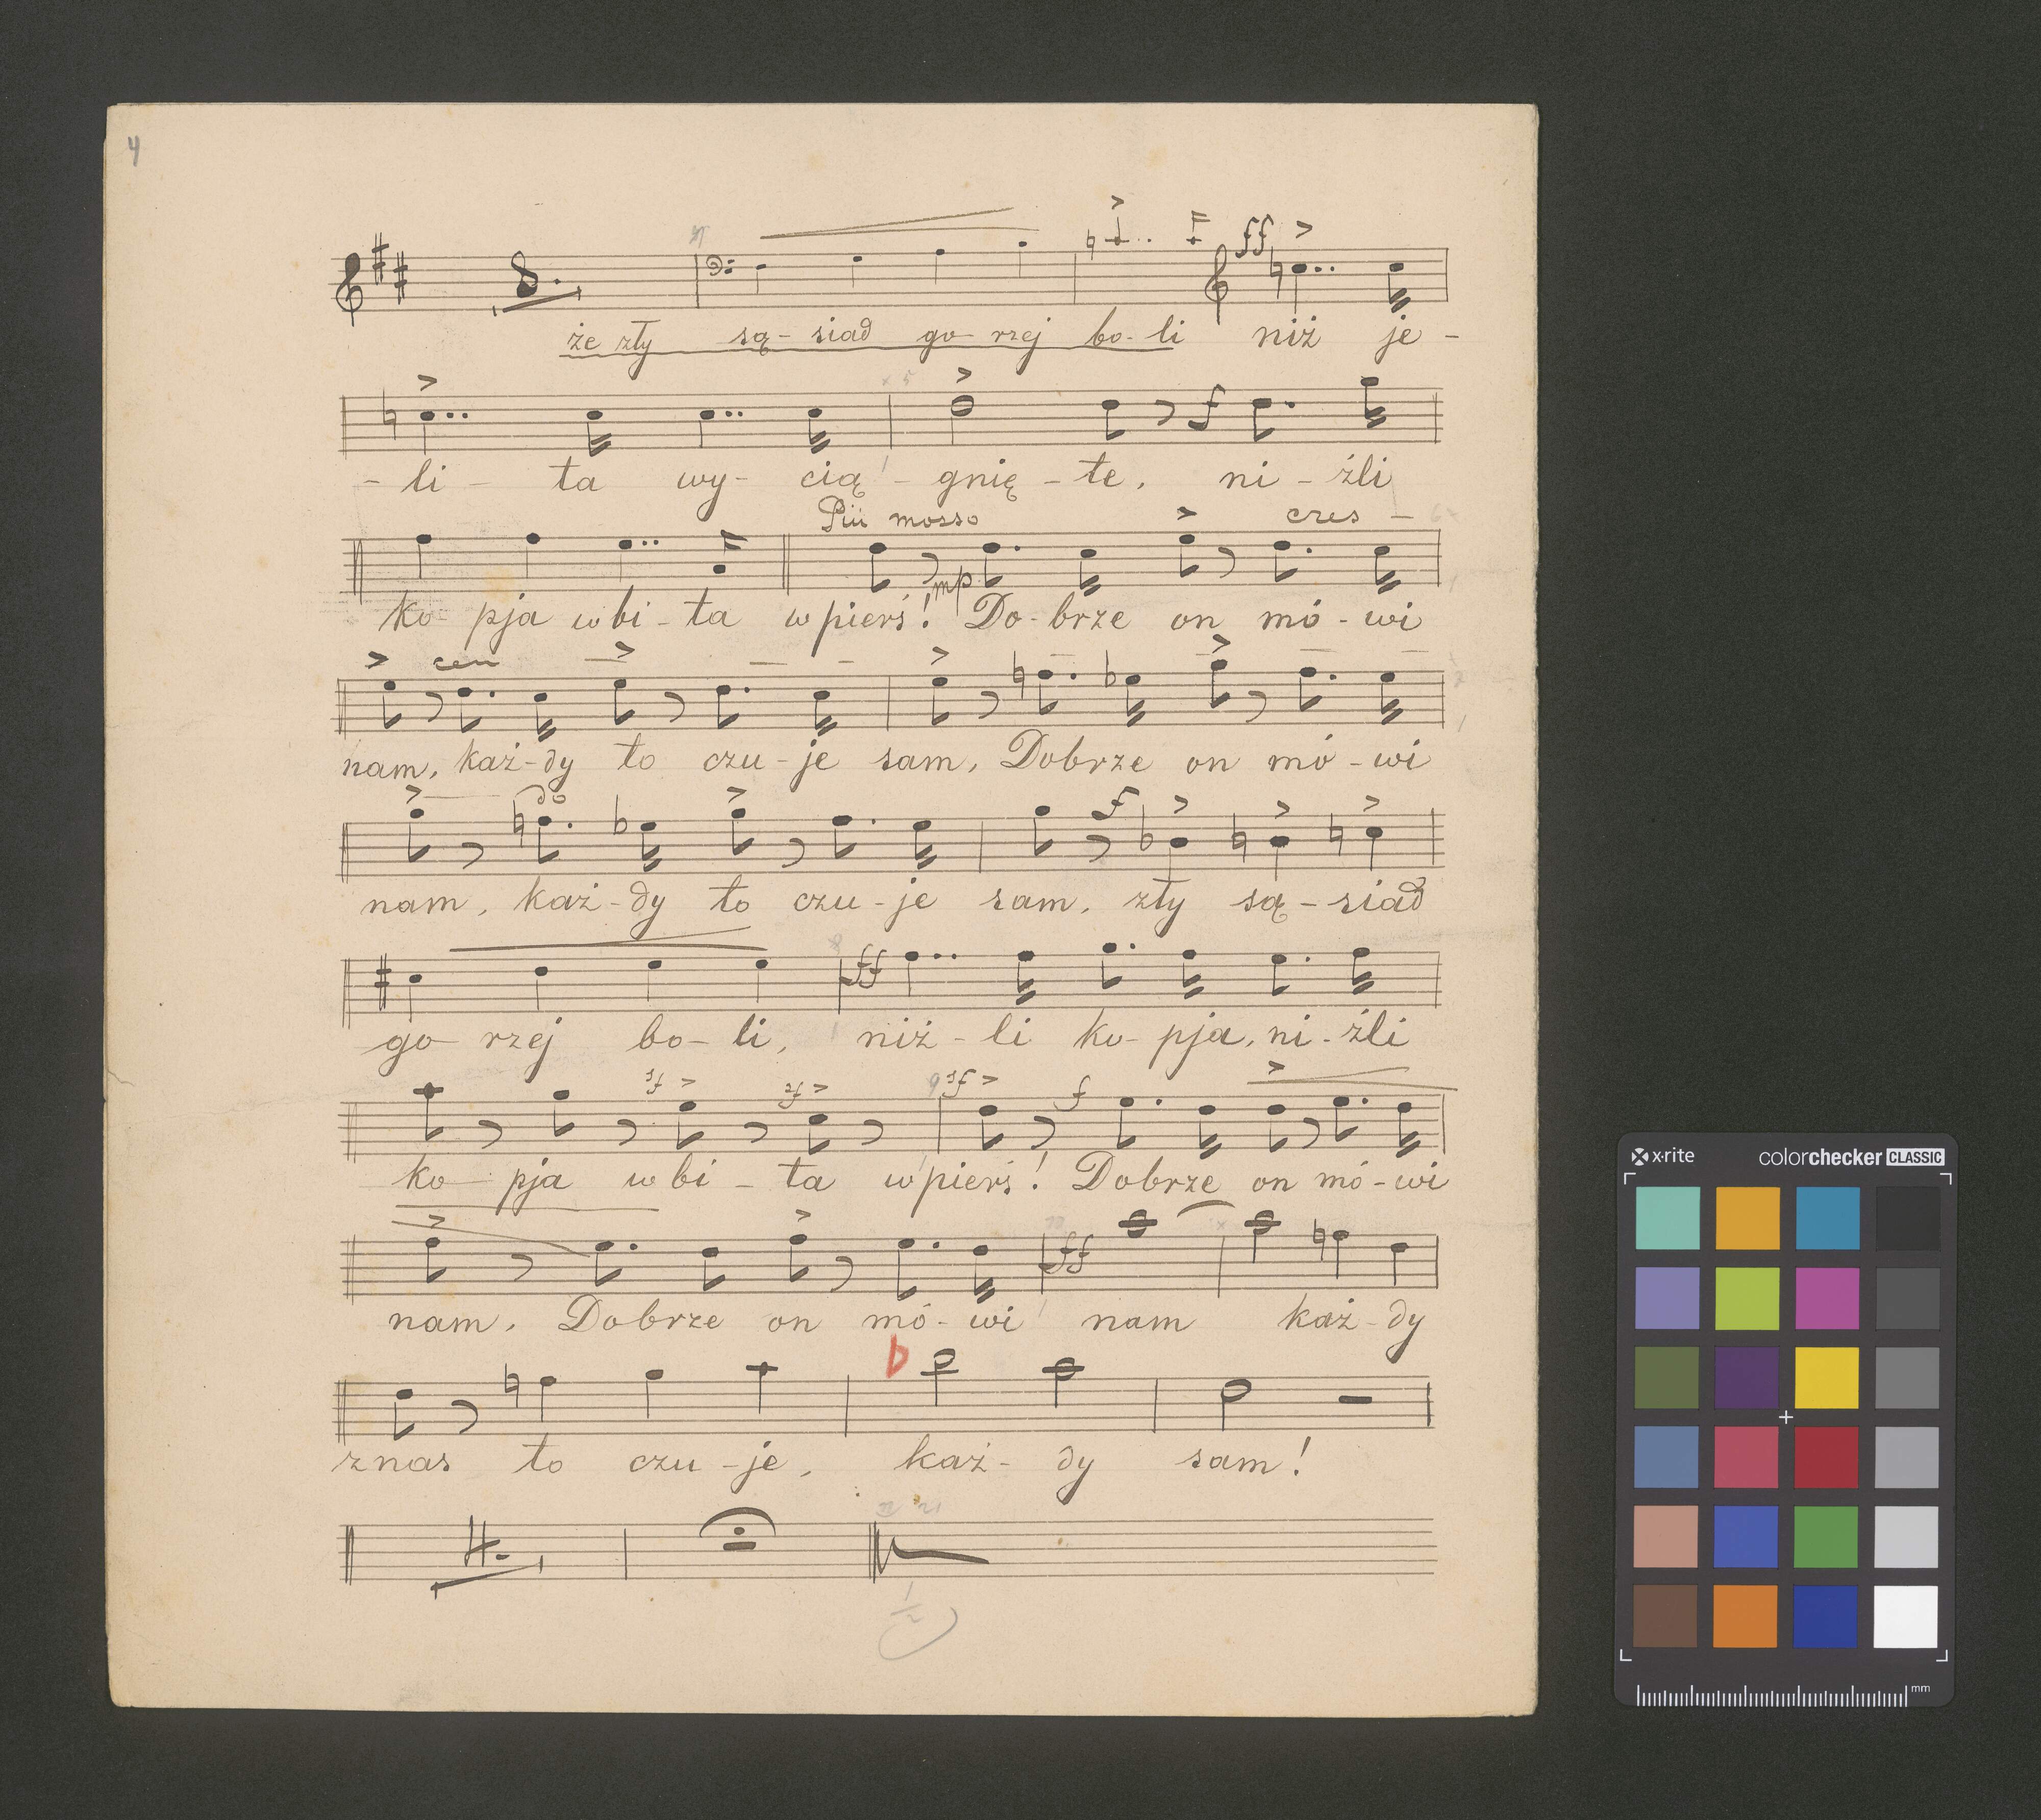 4
8.
ff
że zły są- siad go- rzej bo- li niż je -
f
- li - ta wy- cią - gnię - te, ni - źli
Più mosso cres -
mp
ko- pja wbi - ta wpierś! Do- brze on mó - wi
cen
nam, każ-dy to czu - je sam, Dobrze on mó - wi
do
f
nam, każ-dy to czu - je sam, zły są - siad
ff
go- rzej bo- li, niż - li ko- pja, ni - źli
sf sf sf f
ko- pja wbi - ta wpierś! Dobrze on mó - wi
ff
nam, Dobrze on mó- wi nam każ - dy
znas to czu - je, każ- dy sam!
4.
x-rite colorchecker CLASSIC
mm